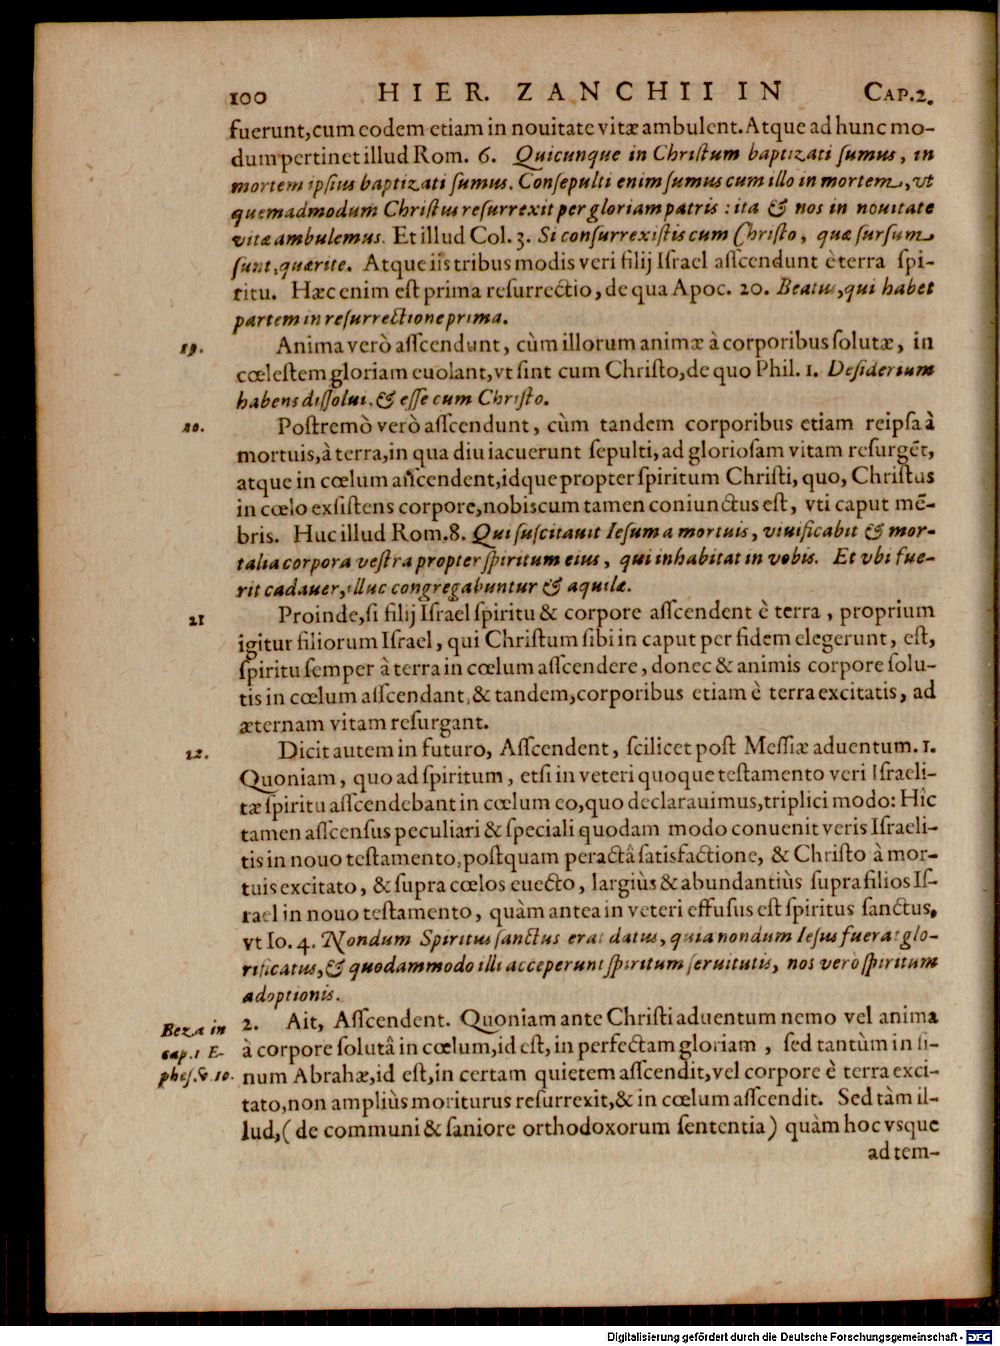 100 HIER. ZANCHII IN CAP.2.
fuerunt, cum eodem etiam in nouitate vitæ ambulent. Atque ad hunc mo-
dum pertinet illud Rom. 6. Quicunque in Chriſtum baptizati ſumus, in
mortem ipſius baptizati ſumus. Conſepulti enim ſumus cum illo in mortem, vt
quemadmodum Chriſtus reſurrexit per gloriam patris: ita & nos in nouitate
vitæ ambulemus. Et illud Col. 3. Si conſurrexiſtis cum Chriſto, quæ ſurſum
ſunt, quærite. Atque iis tribus modis veri filij Iſrael aſſcendunt è terra ſpi-
ritu. Hæc enim eſt prima reſurrectio, de qua Apoc. 20. Beatus, qui habet
partem in reſurrectione prima.
19. Anima verò aſſcendunt, cùm illorum animæ à corporibus ſolutæ, in
cœleſtem gloriam euolant, vt ſint cum Chriſto, de quo Phil. 1. Deſiderium
habens diſſolui, & eſſe cum Chriſto.
20. Poſtremò verò aſſcendunt, cùm tandem corporibus etiam reipſa à
mortuis, à terra, in qua diu iacuerunt ſepulti, ad glorioſam vitam reſurgēt,
atque in cœlum aſſcendent, idque propter ſpiritum Chriſti, quo, Chriſtus
in cœlo exſiſtens corpore, nobiscum tamen coniunctus eſt, vti caput mē-
bris. Huc illud Rom. 8. Qui ſuſcitauit Ieſum a mortuis, viuificabit & mor-
talia corpora veſtra propter ſpiritum eius, qui inhabitat in vobis. Et vbi fue-
rit cadauer, illuc congregabuntur & aquilæ.
21 Proinde, ſi filij Iſrael ſpiritu & corpore aſſcendent è terra, proprium
igitur filiorum Iſrael, qui Chriſtum ſibi in caput per fidem elegerunt, eſt,
ſpiritu ſemper à terra in cœlum aſſcendere, donec & animis corpore ſolu-
tis in cœlum aſſcendant, & tandem, corporibus etiam è terra excitatis, ad
æternam vitam reſurgant.
22. Dicit autem in futuro, Aſſcendent, ſcilicet poſt Meſſiæ aduentum. 1.
Quoniam, quo ad ſpiritum, etſi in veteri quoque teſtamento veri Iſraeli-
tæ ſpiritu aſſcendebant in cœlum eo, quo declarauimus, triplici modo: Hîc
tamen aſſcenſus peculiari & ſpeciali quodam modo conuenit veris Iſraeli-
tis in nouo teſtamento, poſtquam peractâ ſatisfactione, & Chriſto à mor-
tuis excitato, & ſupra cœlos euecto, largiùs & abundantiùs ſupra filios Iſ-
rael in nouo teſtamento, quàm antea in veteri effuſus eſt ſpiritus ſanctus,
vt Io. 4. Nondum Spiritus ſanctus erat datus, quia nondum Ieſus fuerat glo-
rificatus, & quodammodo illi acceperunt ſpiritum ſeruitutis, nos vero ſpiritum
adoptionis.
2. Ait, Aſſcendent. Quoniam ante Chriſti aduentum nemo vel anima
à corpore ſolutâ in cœlum, id eſt, in perfectam gloriam, ſed tantùm in ſi-
num Abrahæ, id eſt, in certam quietem aſſcendit, vel corpore è terra exci-
tato, non ampliùs moriturus reſurrexit, & in cœlum aſſcendit. Sed tàm il-
lud, (de communi & ſaniore orthodoxorum ſententia) quàm hoc vsque
ad tem-
Beza in
cap. 1 E-
pheſ. & 10.
Digitalisierung gefördert durch die Deutsche Forschungsgemeinschaft - DFG